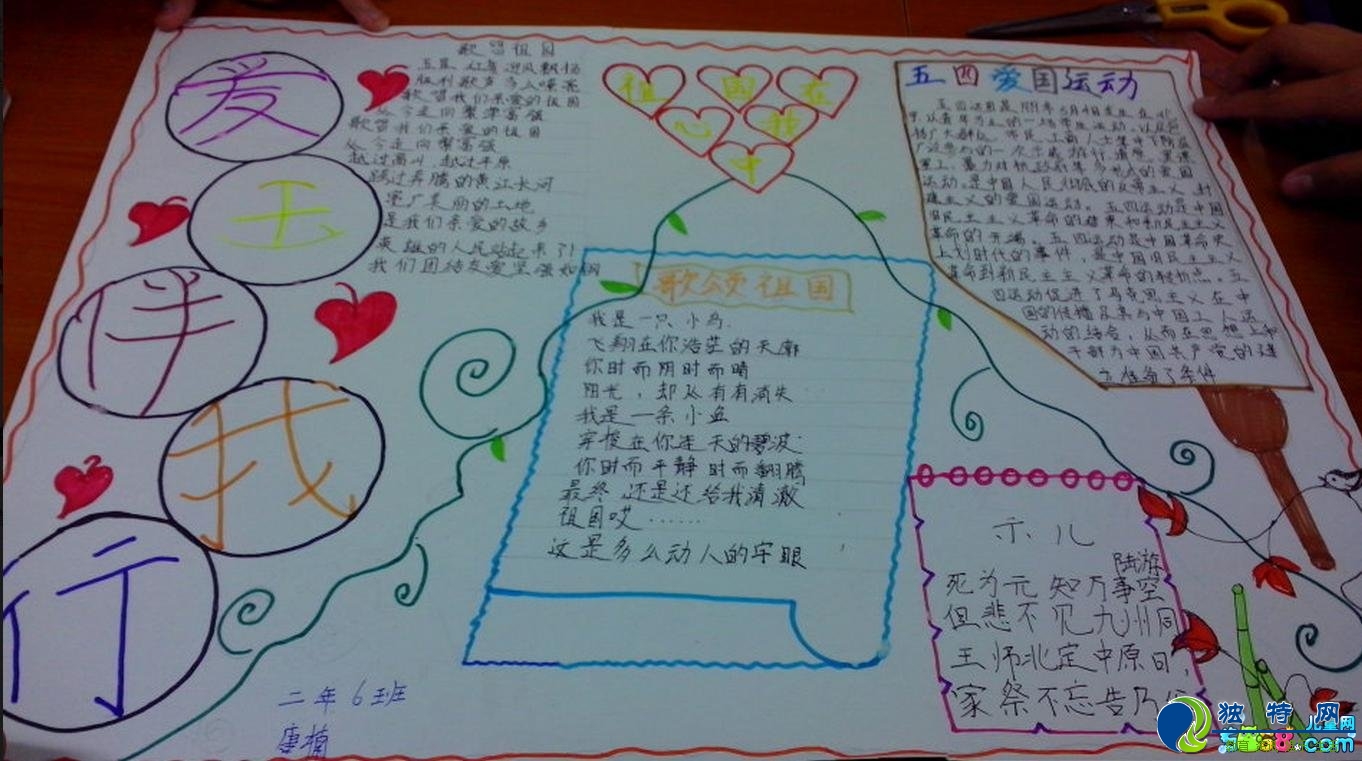 爱
玉
伴
我
行
歌唱祖国
五星红旗迎风飘扬
胜利歌声多么嘹亮
歌唱我们亲爱的祖国
从今走向繁荣富强
歌唱我们亲爱的祖国
从今走向繁荣富强
越过高山 越过平原
跨过奔腾的黄江长河
宽广美丽的土地
是我们亲爱的故乡
英雄的人民站起来了!
我们团结友爱坚强如钢
祖国在
心我
中
歌颂祖国
我是一只小鸟.
飞翔在你浩茫的天廓
你时而阴时而晴
阳光,却从有有消失
我是一条小鱼
穿梭在你连天的碧波
你时而平静时而翻腾
最终还是还给我清澈
祖国哎……
这是多么动人的字眼
五四爱国运动
五四运动是1919年5月4日发生在北
京以青年为主的一场学生运动,以及包
括广大群众、市民、工商人士等中下阶层
广泛参与的一次示威游行、请愿、罢课
罢工、暴力对抗政府等多形式的爱国
运动。是中国人民彻底的反帝主义、封
建主义的爱国运动。五四运动是中国
旧民主主义革命的结束和新民主主义
革命的开端。五四运动是中国革命史
上划时代的事件,是中国旧民主主义
革命到新民主主义革命的转折点。五
四运动促进了马克思主义在中
国的传播及其与中国工人运
动的结合,从而在思想上和
干部为中国共产党的建
立准备了条件
示儿
陆游
死为元知万事空
但悲不见九州同
王师北定中原日,
家祭不忘告乃
二年6班
康楠
独特网
儿童网
.com